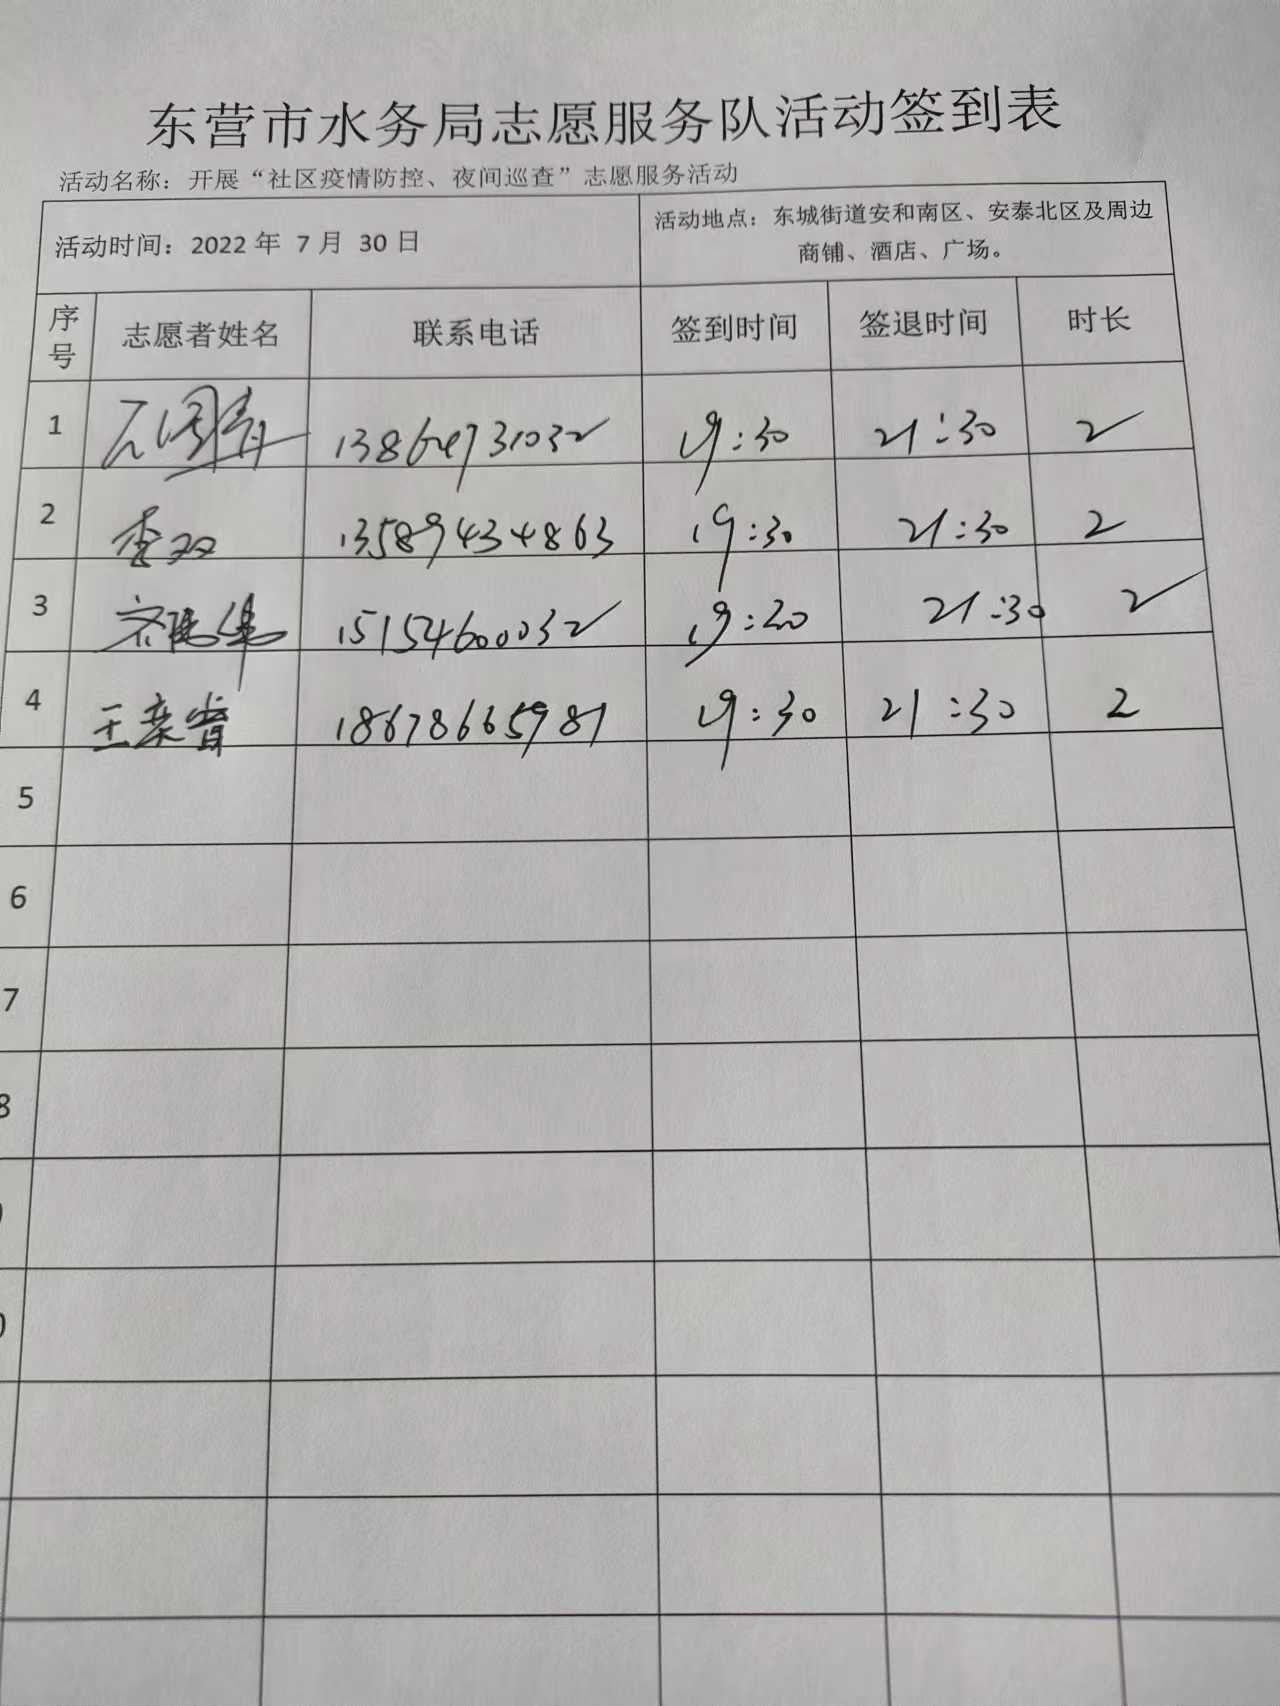 东营市水务局志愿服务队活动签到表
活动名称：开展“社区疫情防控、夜间巡查”志愿服务活动
活动时间：2022 年 7 月 30 日
活动地点：东城街道安和南区、安泰北区及周边
商铺、酒店、广场。
序号 志愿者姓名 联系电话 签到时间 签退时间 时长
1 19:30 21:30 2
2 李双 13589434863 19:30 21:30 2
3 15154600032 19:30 21:30 2
4 王 18678665981 19:30 21:30 2
5
6
7
8